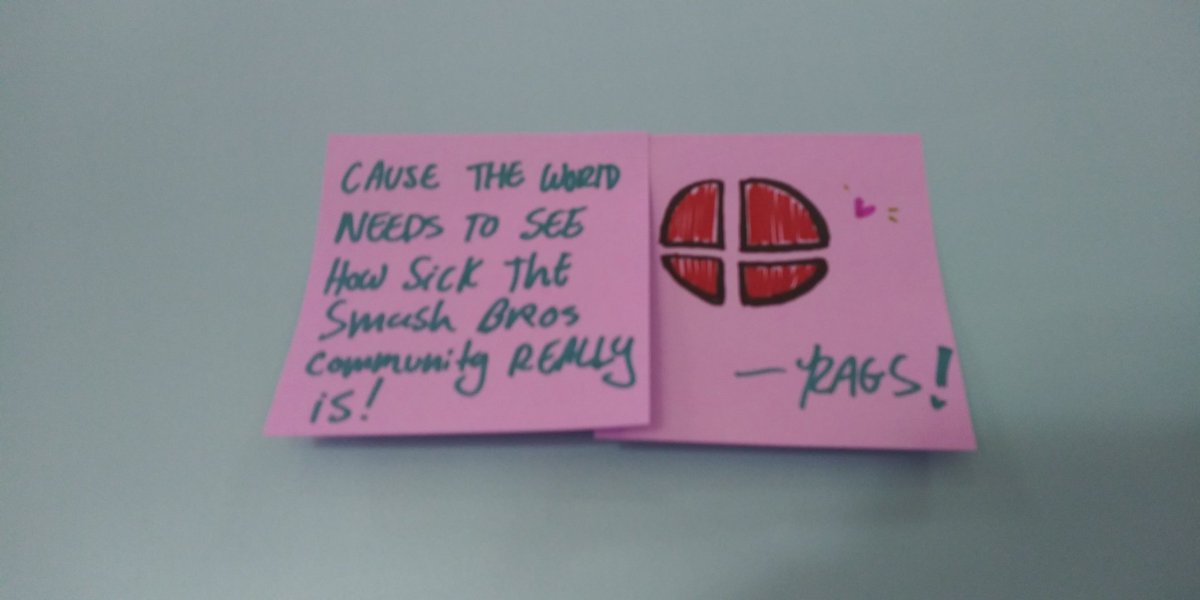 CAUSE THE WORLD
NEEDS TO SEE
HOW SICK THE
Smash BROS
community REALLY
is!
— RAGS!